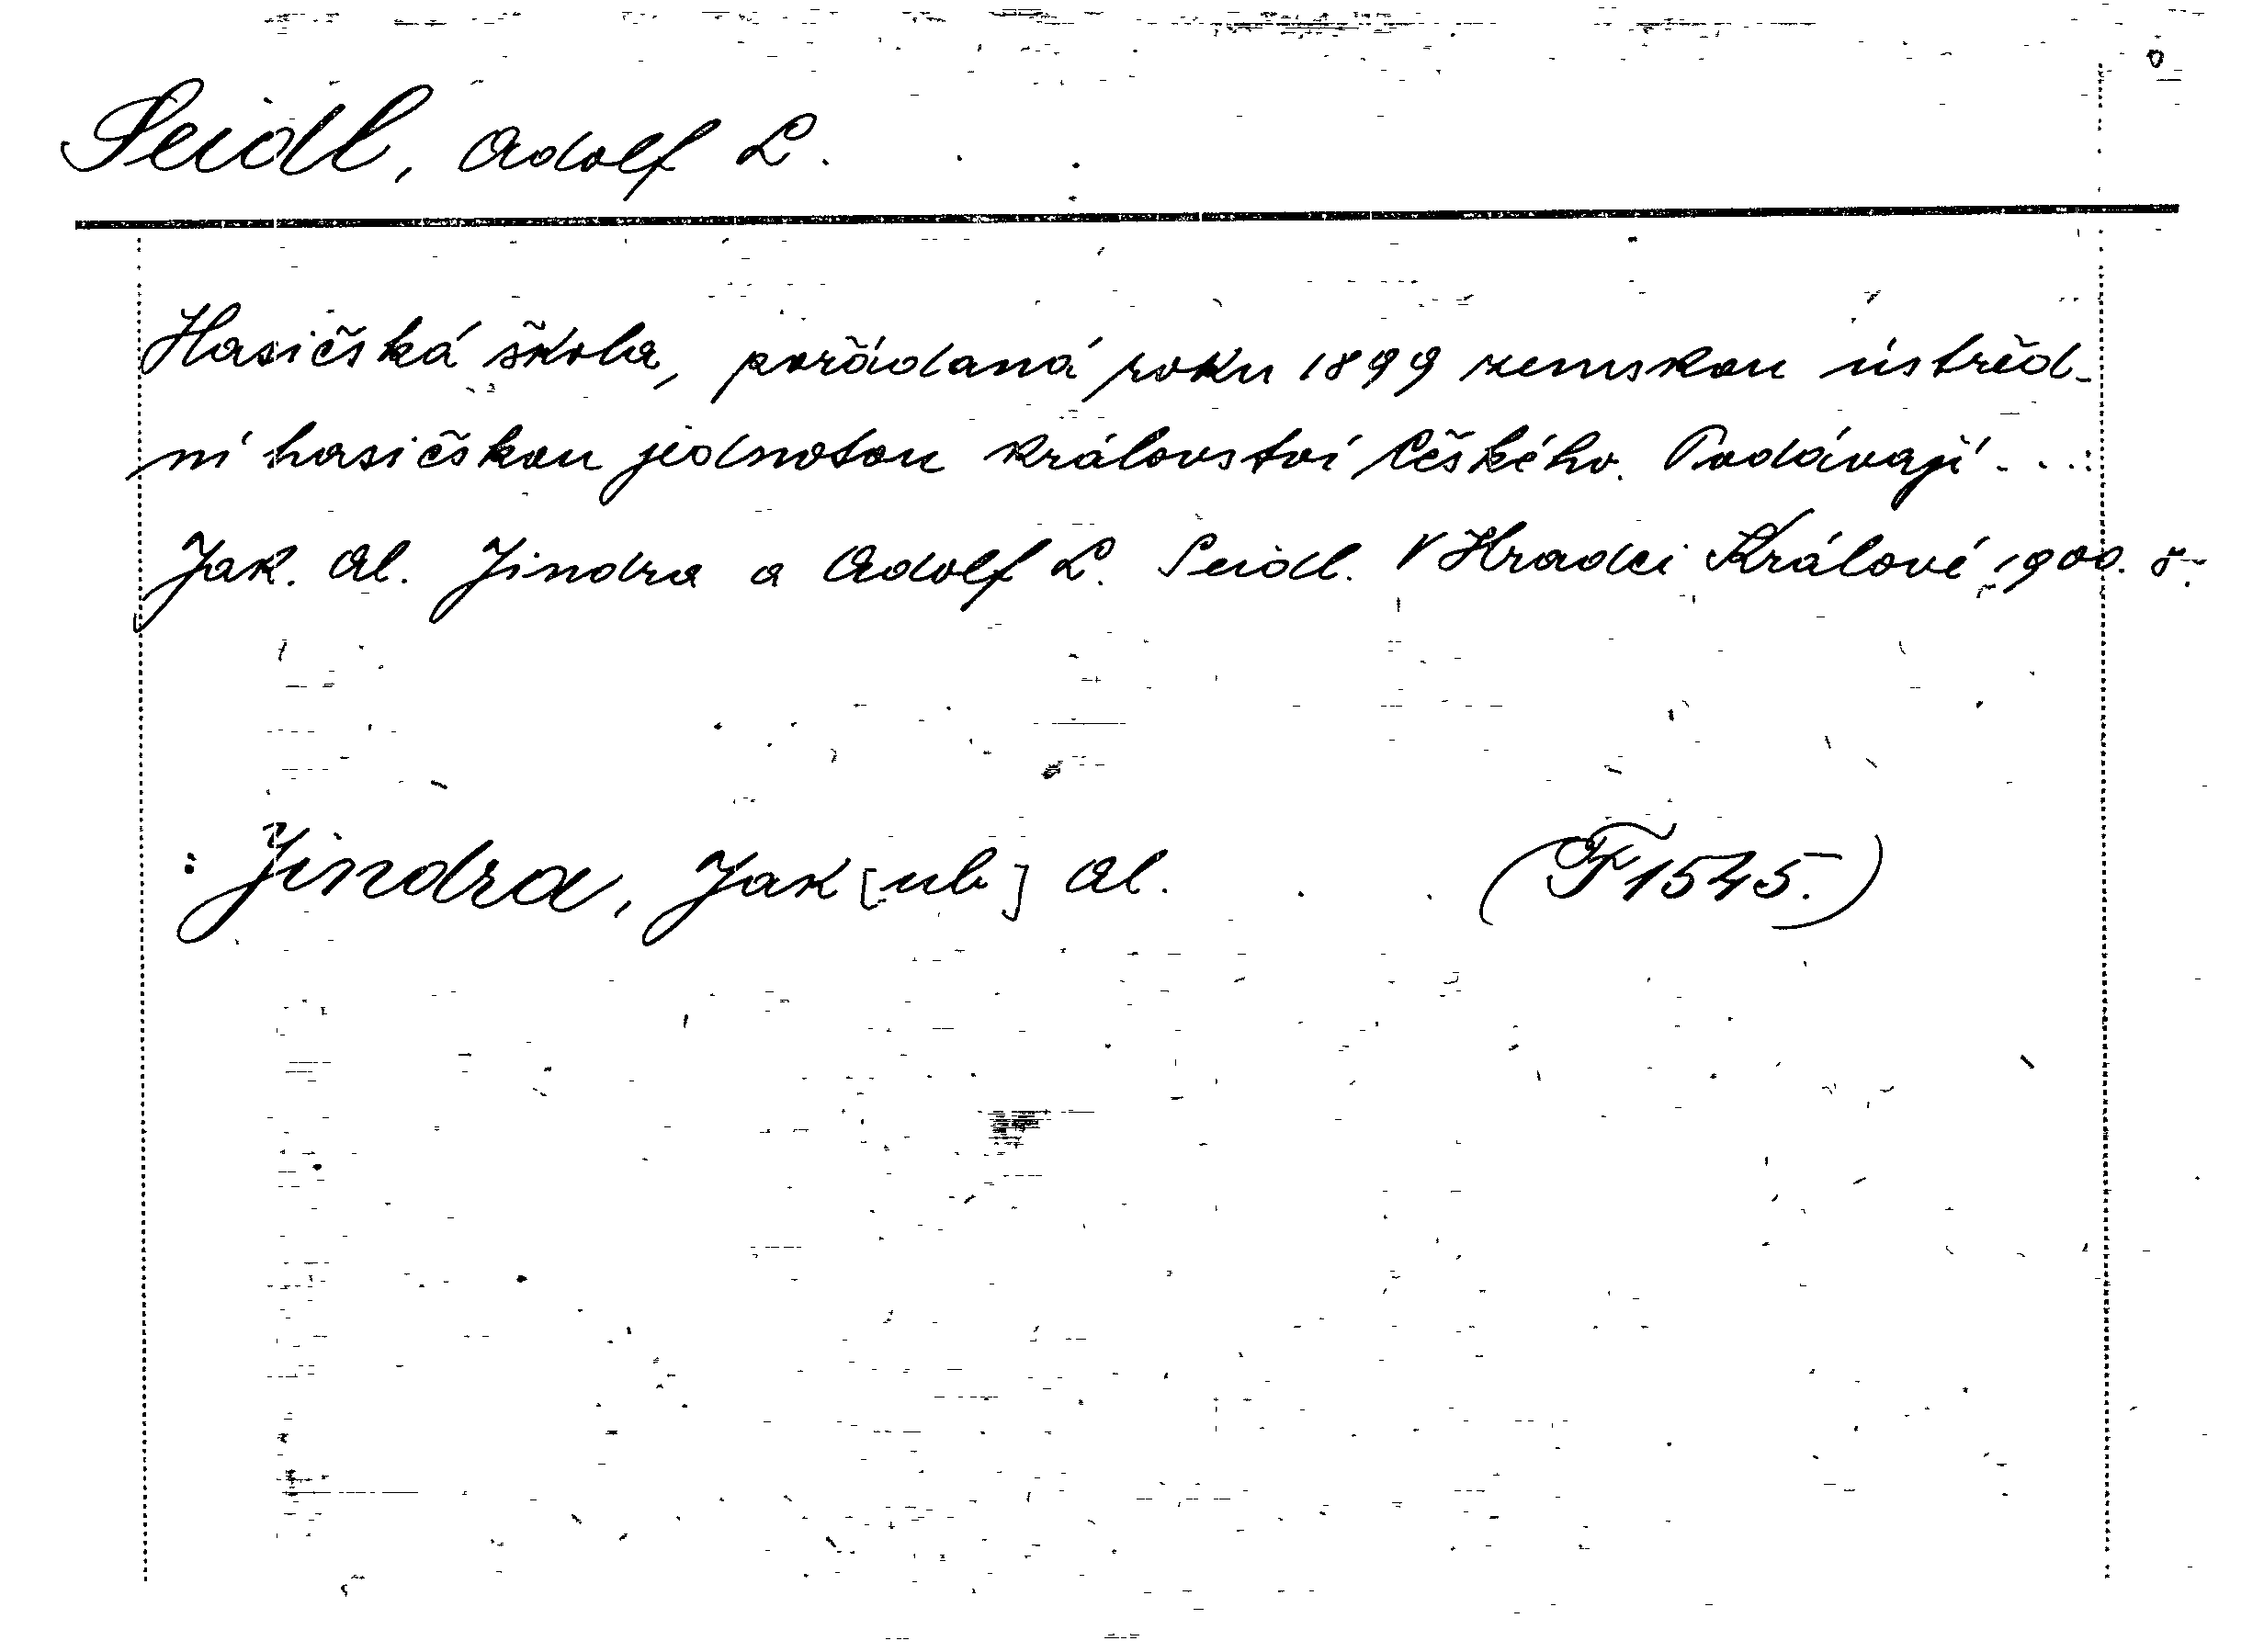 Seidl, Adolf L.
Hasičská škola, pořádaná roku 1899 zemskou ústřed-
ní hasičskou jednotou království Českého. Podávají...:
Jak. Al. Jindra a Adolf L. Seidl. V Hradci Králové 1900. 8°.
: Jindra, Jak[ub] Al. (F 1545.)